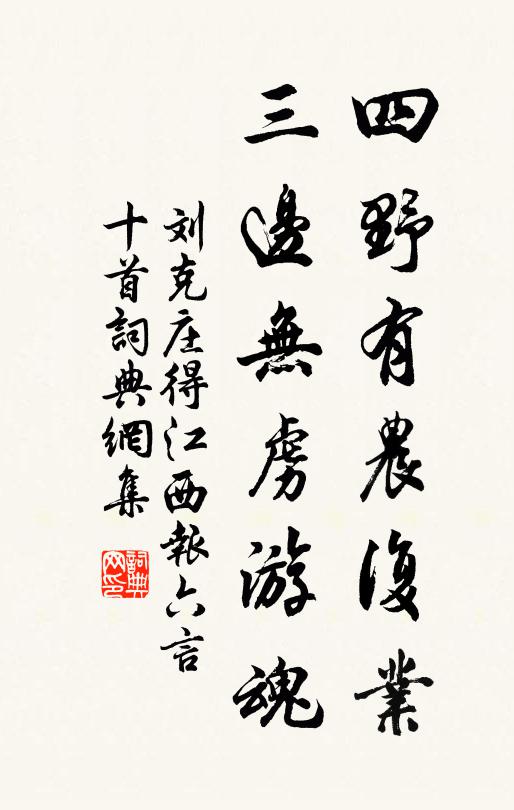 四野有農復業
三邊無虜游魂
刘克庄得江西報六言
十首詞典網集
詞典網印